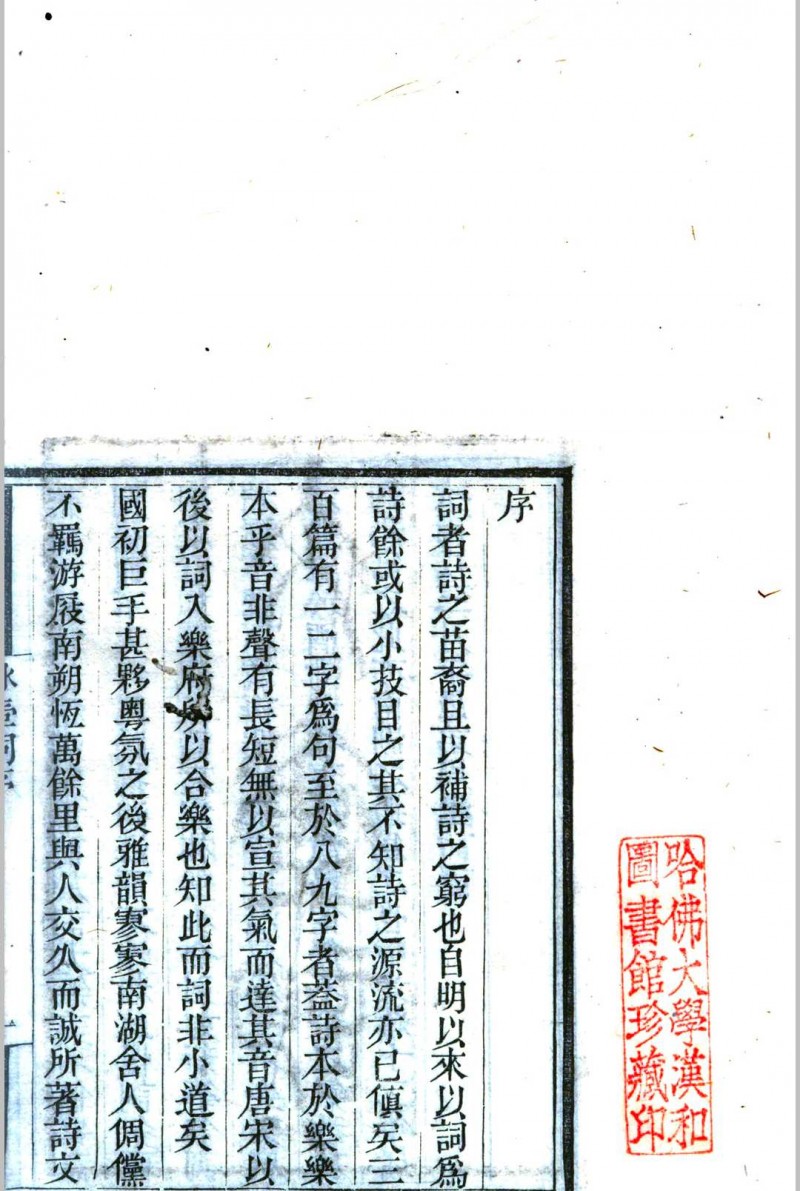 序
詞者詩之苗裔且以補詩之窮也自明以來以詞爲
詩餘或以小技目之其不知詩之源流亦已傎矣三
百篇有一二字爲句至於八九字者葢詩本於樂樂
本乎音非聲有長短無以宣其氣而達其音唐宋以
後以詞入樂府所以合樂也知此而詞非小道矣
國初巨手甚夥粤氛之後雅韻寥寥南湖舍人倜儻
不羈游屐南朔恆萬餘里與人交久而誠所著詩文
詞序
一
哈佛大學漢和
圖書館珍藏印